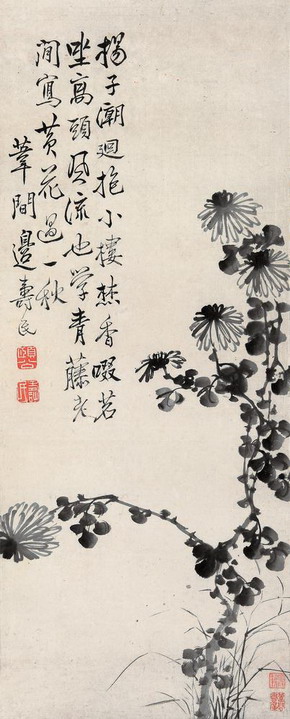 揚子潮迴抱小樓焚香啜茗
坐高頭風流也学青藤老
閒寫黄花過一秋
葦間邊壽民
頤公
壽民